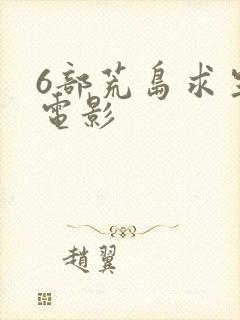 6部荒島求生
電影
趙翼